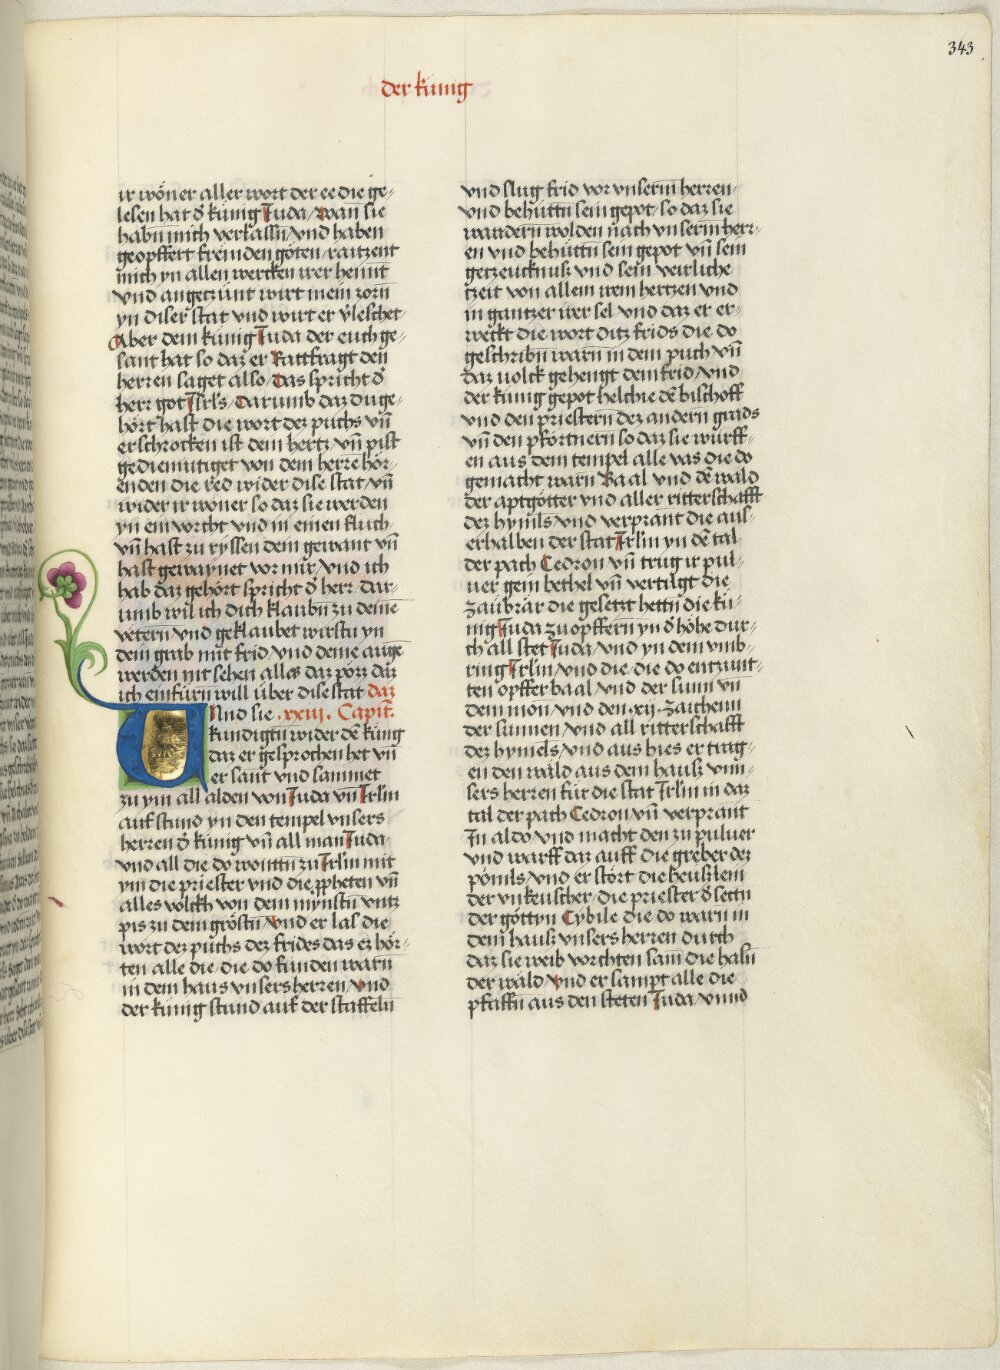 343
der kunig
ir wöner aller wort der ee die ge-
lesen hat d̕ künig Juda / wan sie
habn̄ mich verlassn̄ / vnd haben
geopffert fremden göten / raitzent
mich yn allen wercken irer hennt
vnd angetzünt wirt mein zorn
yn diser stat vnd wirt er v̕leschet-
Aber dem künig Juda der euch ge-
sant hat so daz er Rattfragt den
herren saget also / Das spricht d̕
herr got Isrls / Darumb daz du ge-
hört hast die wort dez puchs vn̄
erschrocken ist dem hertz vn̄ pist
gediemutiget von dem herre hör-
enden die red wider dise stat / vn̄
wider ir wöner so daz sie werden
yn ein worcht vnd in einen fluch
vn̄ hast zu ryssen dem gewant vn̄
hast gewaynet vor mir / vnd ich
hab daz gehört spricht d̕ herr dar-
umb wil ich dich klaubn̄ zu deine
vetern vnd geklaubet wirstu yn
dem grab mit frid / vnd deine auge
werden nit sehen alles daz pözz daz
ich einfürn will über dise stat daz
Und sie .xxiii. Capit̄.
kundigtn̄ wider dē küng
daz er gesprochen het vn̄
er sant vnd sammet
zu ym all alden von Juda vn̄ Irlm̄
auf stund yn den tempel vnsers
herren d̕ künig vn̄ all man Juda
vnd all die do wontn̄ zu Irlm̄ mit
ym die priester vnd die ꝓpheten vn̄
alles völckh von dem mynstn̄ vntz
pis zu dem gröstn̄ / vnd er las die
wort dez puchs dez frides das ez hör-
ten alle die / die do funden warn̄
in dem haus vnsers herren / vnd
der künig stund auf der staffeln
vnd slug frid vor vnserm herren-
vnd behüttn̄ sein gepot / so daz sie
wandern wolden nach vnserm herr-
en vnd behüttn̄ sein gepot vn̄ sein
getzeucknusz vnd sein veirliche
tzeit von allem irem hertzen vnd
in gantzer irer sel vnd daz er er-
weckt die wort ditz frids die do
geschribn̄ warn in dem puch vn̄
daz volck gehengt dem frid / vnd
der künig gepot helchie dē bischoff
vnd den priestern dez andern grads
vn̄ den pförtnern so daz sie würff-
en aus dem tempel alle vas die do
gemacht warn Baal vnd dē wald
der aptgötter vnd aller ritterschafft
dez hymls / vnd verprant die aus-
erhalben der stat Irlm̄ yn dē tal
der pach Cedron vn̄ trug ir pul-
uer gein bethel vn̄ vertilgt die
zaubrär die gesetzt hettn̄ die kü-
nig Juda zu opffern yn d̕ höhe dur-
ch all stet Juda / vnd yn dem vmb-
ring Irlm̄ / vnd die / die do entzunt-
ten opffer baal / vnd der sunn vn̄
dem mon / vnd den .xij. zaichenn
der sunnen / vnd all ritterschafft
dez hymels / vnd aus hies er trag-
en den wäld aus dem hausz vnn-
sers herren für die stat Irlm̄ in daz
tal der pach Cedron vn̄ verprant
In aldo / vnd macht den zu puluer
vnd warff daz auff die greber dez
pöuils / vnd er stört die heuszlein
der vnkeuscher / die priester d̕ settn̄
der göttyn Cybile die do warn in
dem hausz vnsers herren durch
daz sie weib worchten sam die hasn̄
der wäld / vnd er sampt alle die
pfaffn̄ aus den steten Juda / vnnd